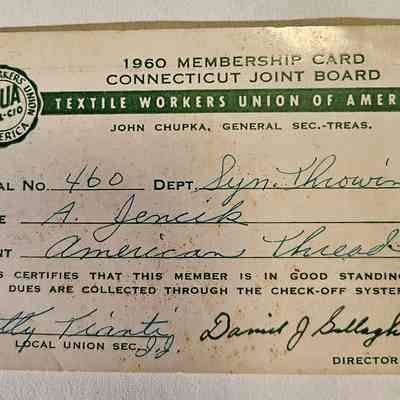 1960 MEMBERSHIP CARD
CONNECTICUT JOINT BOARD
TEXTILE WORKERS UNION OF AMER
JOHN CHUPKA, GENERAL SEC.-TREAS.
AL NO. 460 DEPT. Syn. Throwin
E A. Jencik
NT American Thread
S CERTIFIES THAT THIS MEMBER IS IN GOOD STANDING
DUES ARE COLLECTED THROUGH THE CHECK-OFF SYSTE
LOCAL UNION SEC. Daniel J Gallagh
DIRECTOR
UA
L-CIO
KERS UNION
ERICA